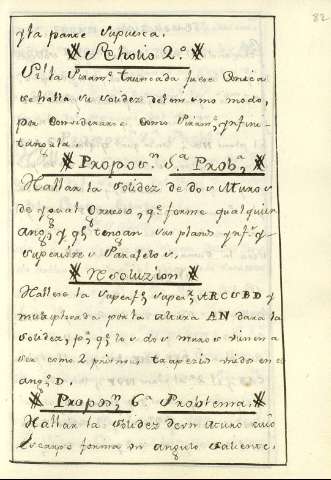 82
y la parte Supuesta.
Scholio 2.º
Si la Piram.e truncada fuere Conica
se halla su solidez del mismo modo,
por considerarse como Piram.e ynfini-
tangula.
Propos.n 5.a Prob.a
Hallar la solidez de dos Muros
de ygual Grueso, q.e forme qualquier
ang.o y q.e tengan sus planos ynf.r y
superiores Paralelos.
Resoluzion
Hallese la Superf.e super.r ARCSBD y
multiplicada por la altura AN dara la
solidez, p.r q.e los dos muros vienen a
ser como 2 prismas trapezios unidos en el
ang.o D.
Propos.n 6.a Problema.
Hallar la solidez de un Muro cuio
Escarpe forma un angulo saliente.